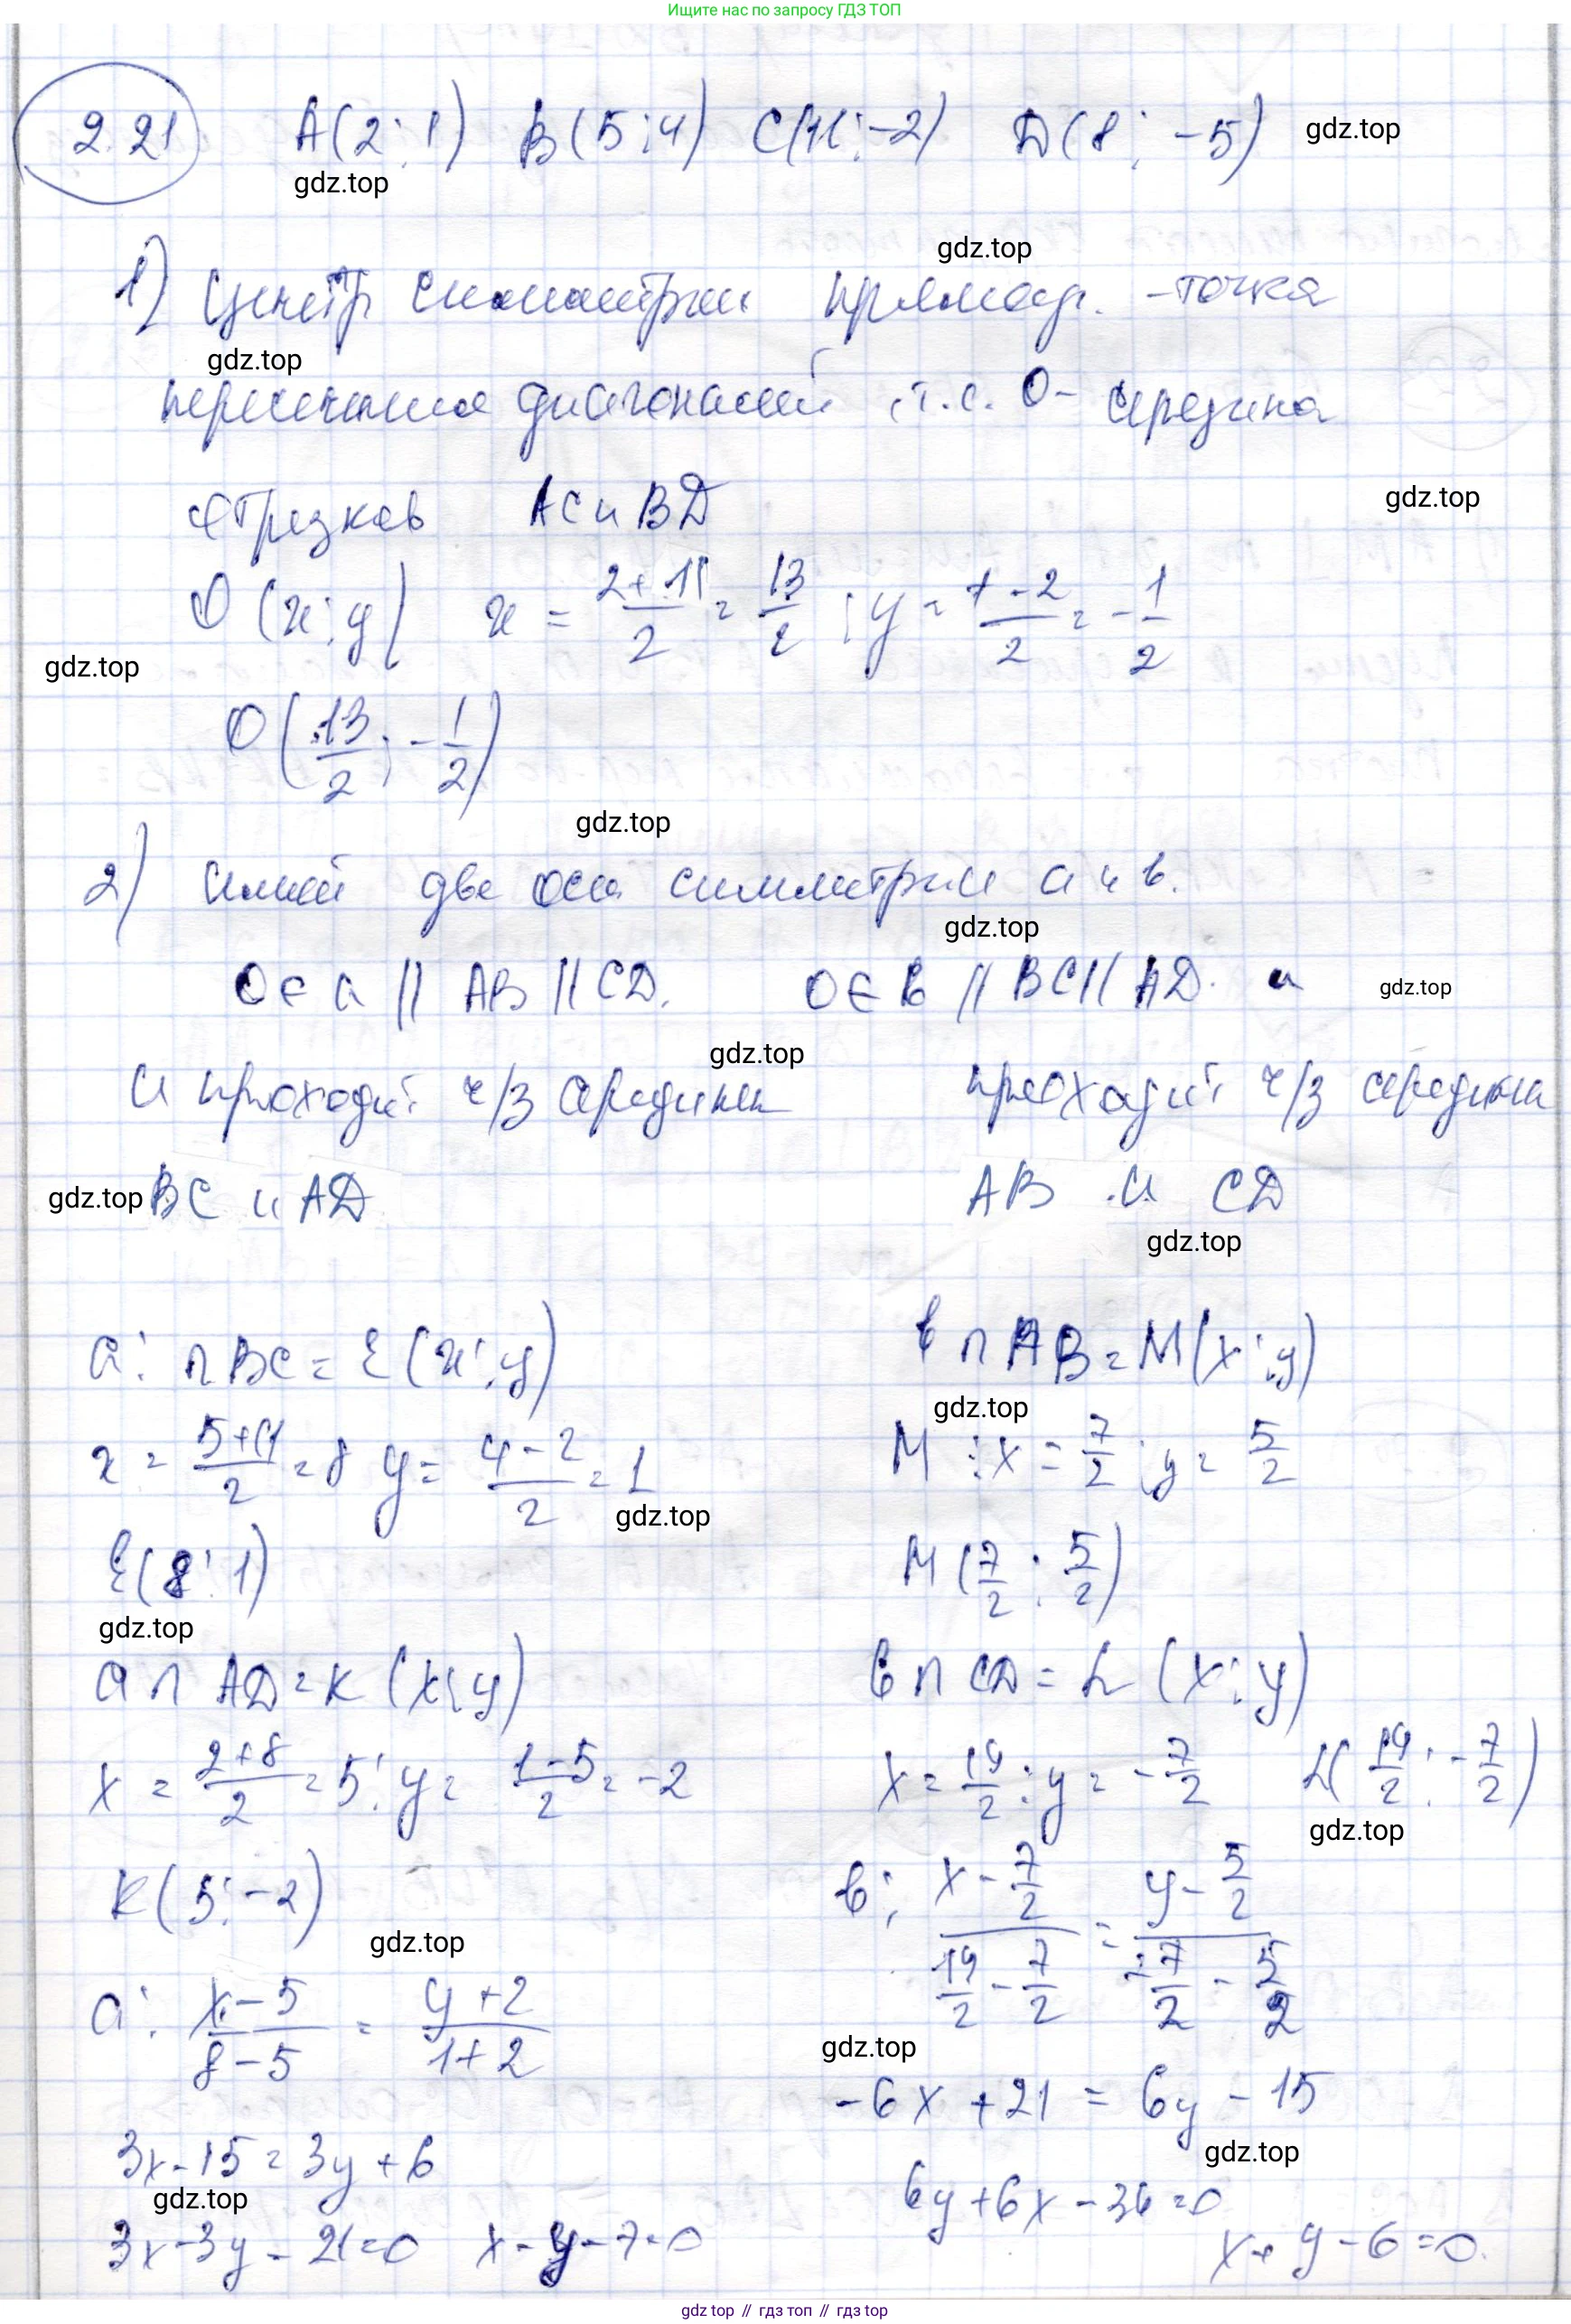 Ищите нас по запросу ГДЗ ТОП
2.21 A(2;1) B(5;4) C(11;-2) D(8;-5) gdz.top
gdz.top
gdz.top
1) Центр симметрии прямоуг. - точка
gdz.top
пересечения диагоналей, т.е. O- середина
gdz.top
отрезков AC и BD
O(x;y) x = (2+11)/2 = 13/2; y = (1-2)/2 = -1/2
gdz.top
O(13/2; -1/2)
gdz.top
2) Имеет две оси симметрии a и b.
gdz.top
O∈a || AB || CD. O∈b || BC || AD. и
gdz.top
gdz.top
и проходит ч/з середины проходит ч/з середины
gdz.top BC и AD AB и CD
gdz.top
a: ∩BC = E(x;y) b∩AB = M(x;y)
gdz.top
x = (5+11)/2 = 8 y = (4-2)/2 = 1 M: x = 7/2; y = 5/2
gdz.top
E(8;1) M(7/2; 5/2)
gdz.top
a∩AD = K(x;y) b∩CD = L(x;y)
x = (2+8)/2 = 5; y = (1-5)/2 = -2 x = 19/2; y = -7/2 L(19/2; -7/2)
gdz.top
K(5;-2) b: (x-7/2)/(19/2-7/2) = (y-5/2)/(-7/2-5/2)
gdz.top
a: (x-5)/(8-5) = (y+2)/(1+2)
gdz.top
-6x+21 = 6y-15
gdz.top
3x-15 = 3y+6
gdz.top
6y+6x-36=0
3x-3y-21=0 x-y-7=0 x+y-6=0.
gdz top // гдз топ // гдз top